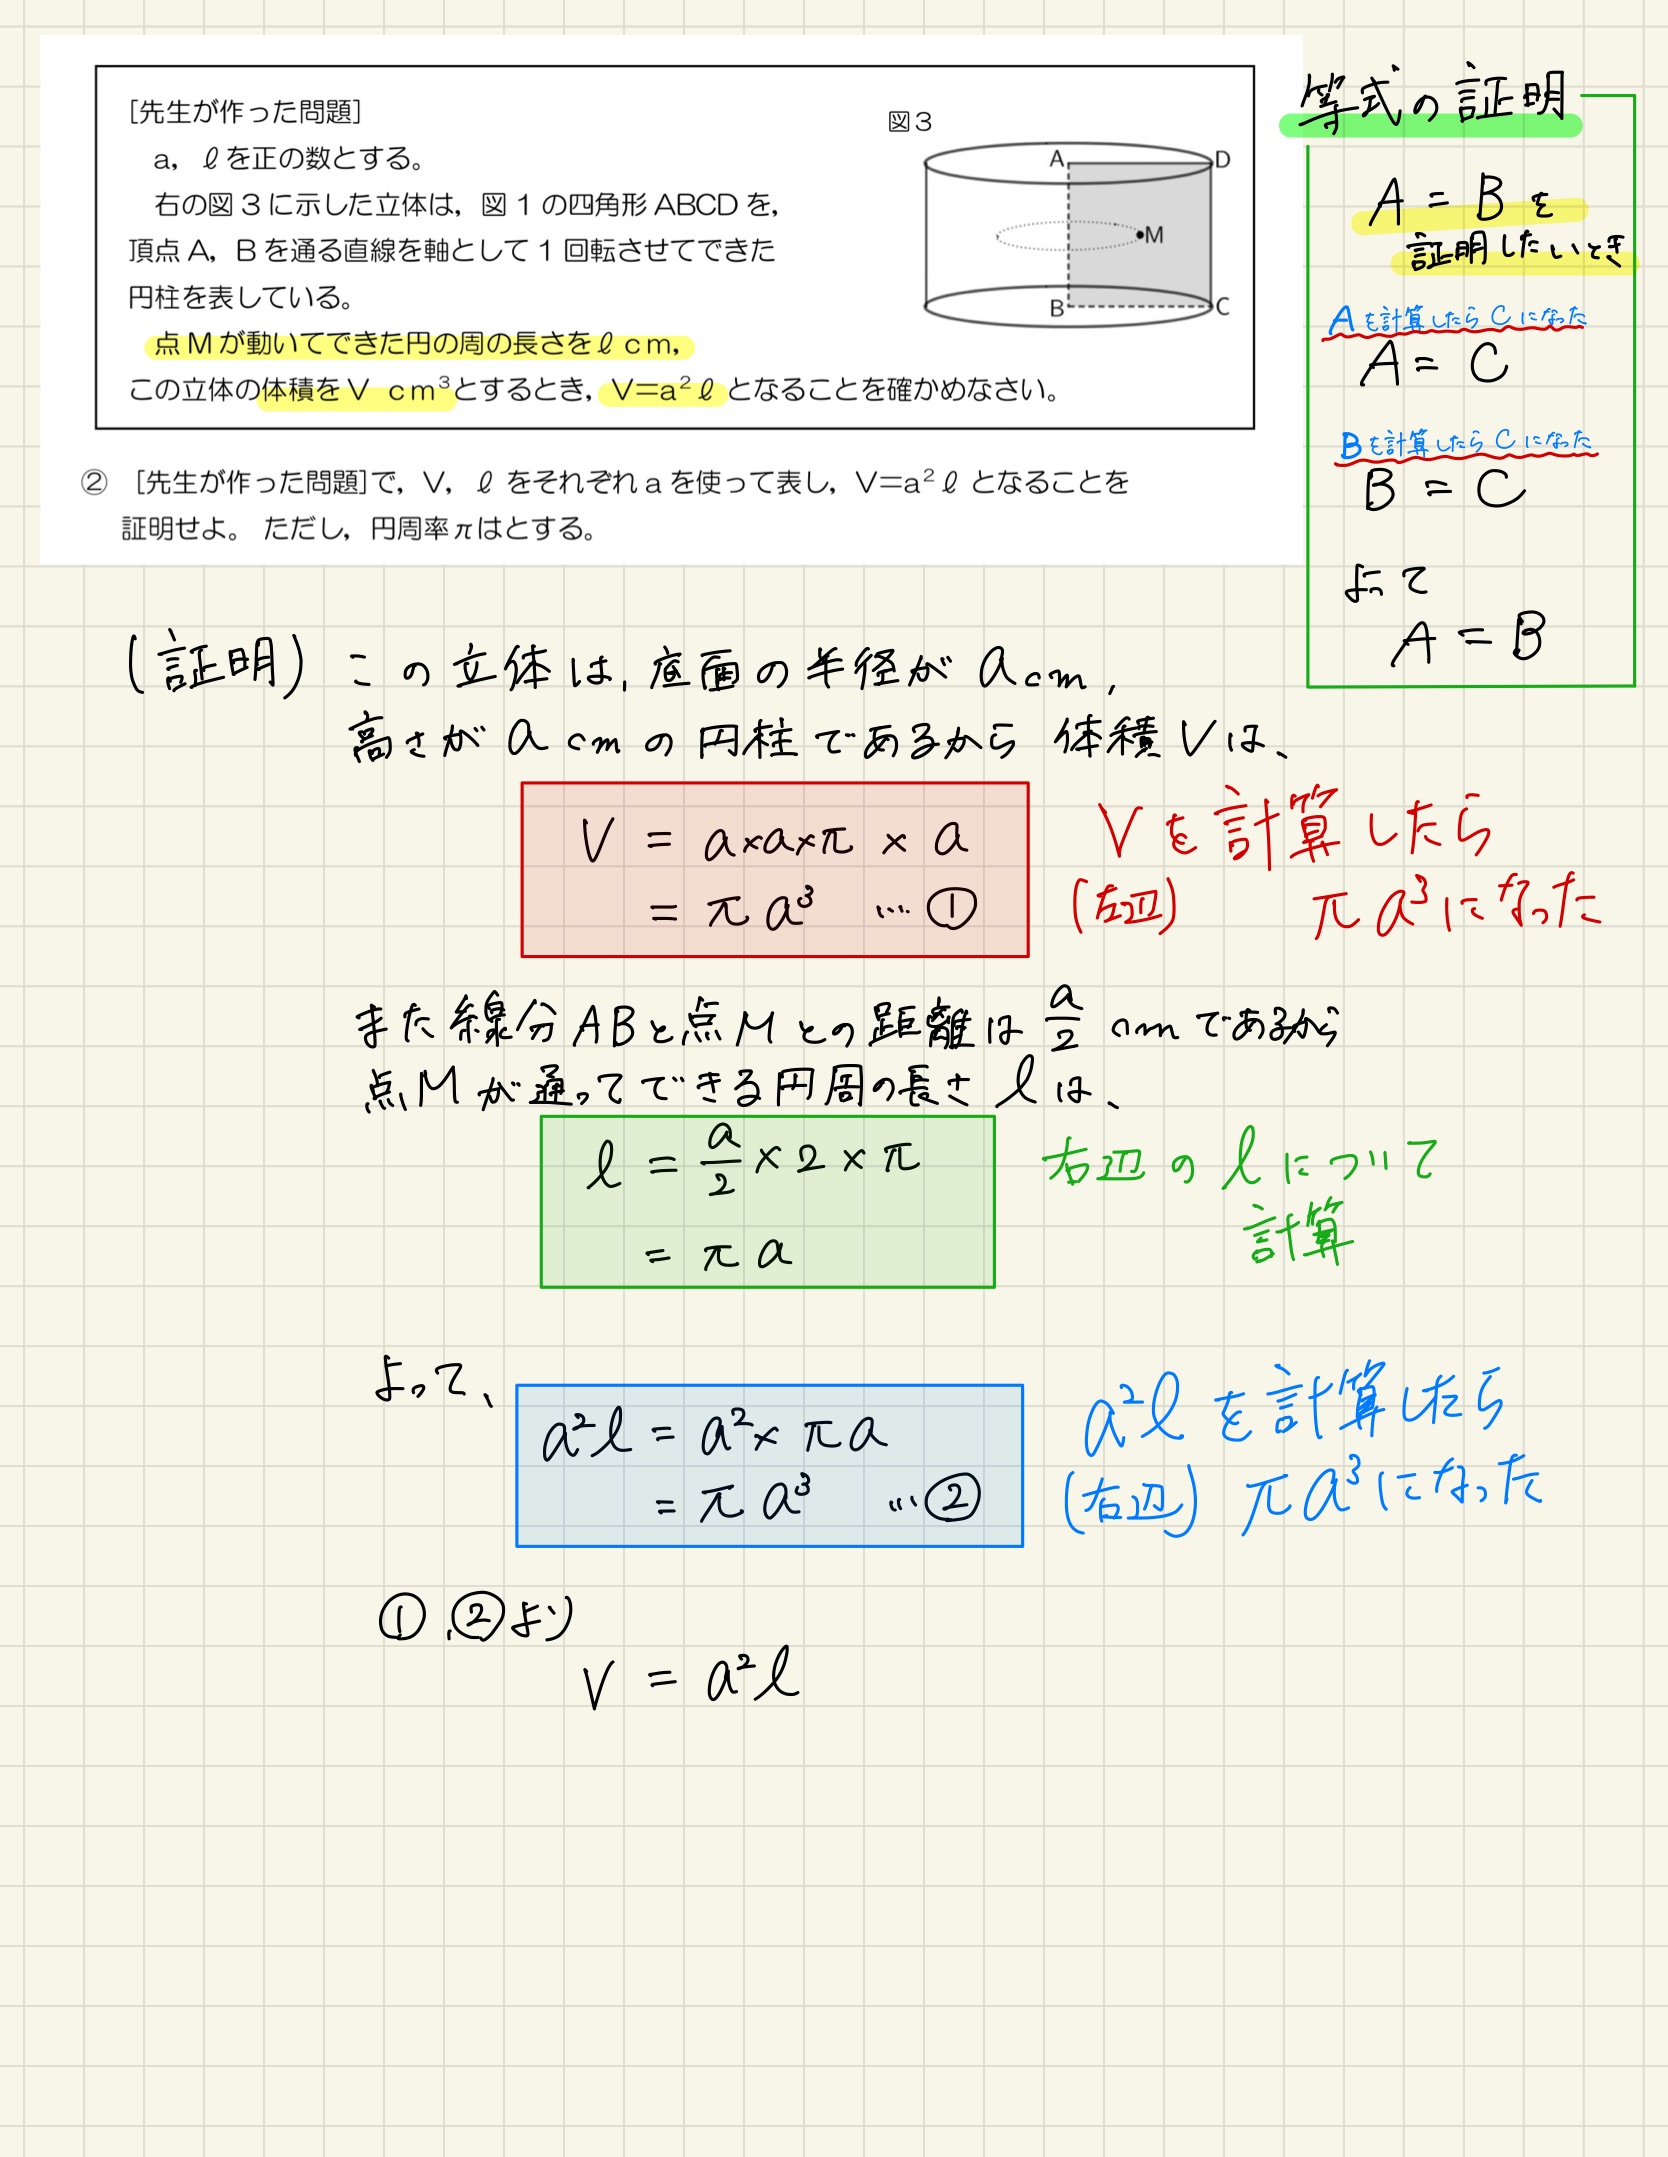 [先生が作った問題]
a，ℓを正の数とする。
右の図3に示した立体は，図1の四角形ABCDを，
頂点A，Bを通る直線を軸として1回転させてできた
円柱を表している。
点Mが動いてできた円の周の長さをℓcm，
この立体の体積をV cm³とするとき，V=a²ℓとなることを確かめなさい。
図3
A
D
M
B
C
② [先生が作った問題]で，V，ℓをそれぞれaを使って表し，V=a²ℓとなることを
証明せよ。ただし，円周率πはとする。
等式の証明
A = Bを
証明したいとき
Aを計算したらCになった
A = C
Bを計算したらCになった
B = C
よって
A = B
(証明) この立体は，底面の半径がacm，
高さがacmの円柱であるから 体積Vは、
V = a×a×π × a
= πa³ …①
Vを計算したら
(左辺) πa³になった
また線分ABと点Mとの距離はa/2 cmであるから
点Mが通ってできる円周の長さℓは、
ℓ = a/2 × 2 × π
= πa
右辺のℓについて
計算
よって、
a²ℓ = a² × πa
= πa³ …②
a²ℓを計算したら
(右辺) πa³になった
①，②より
V = a²ℓ